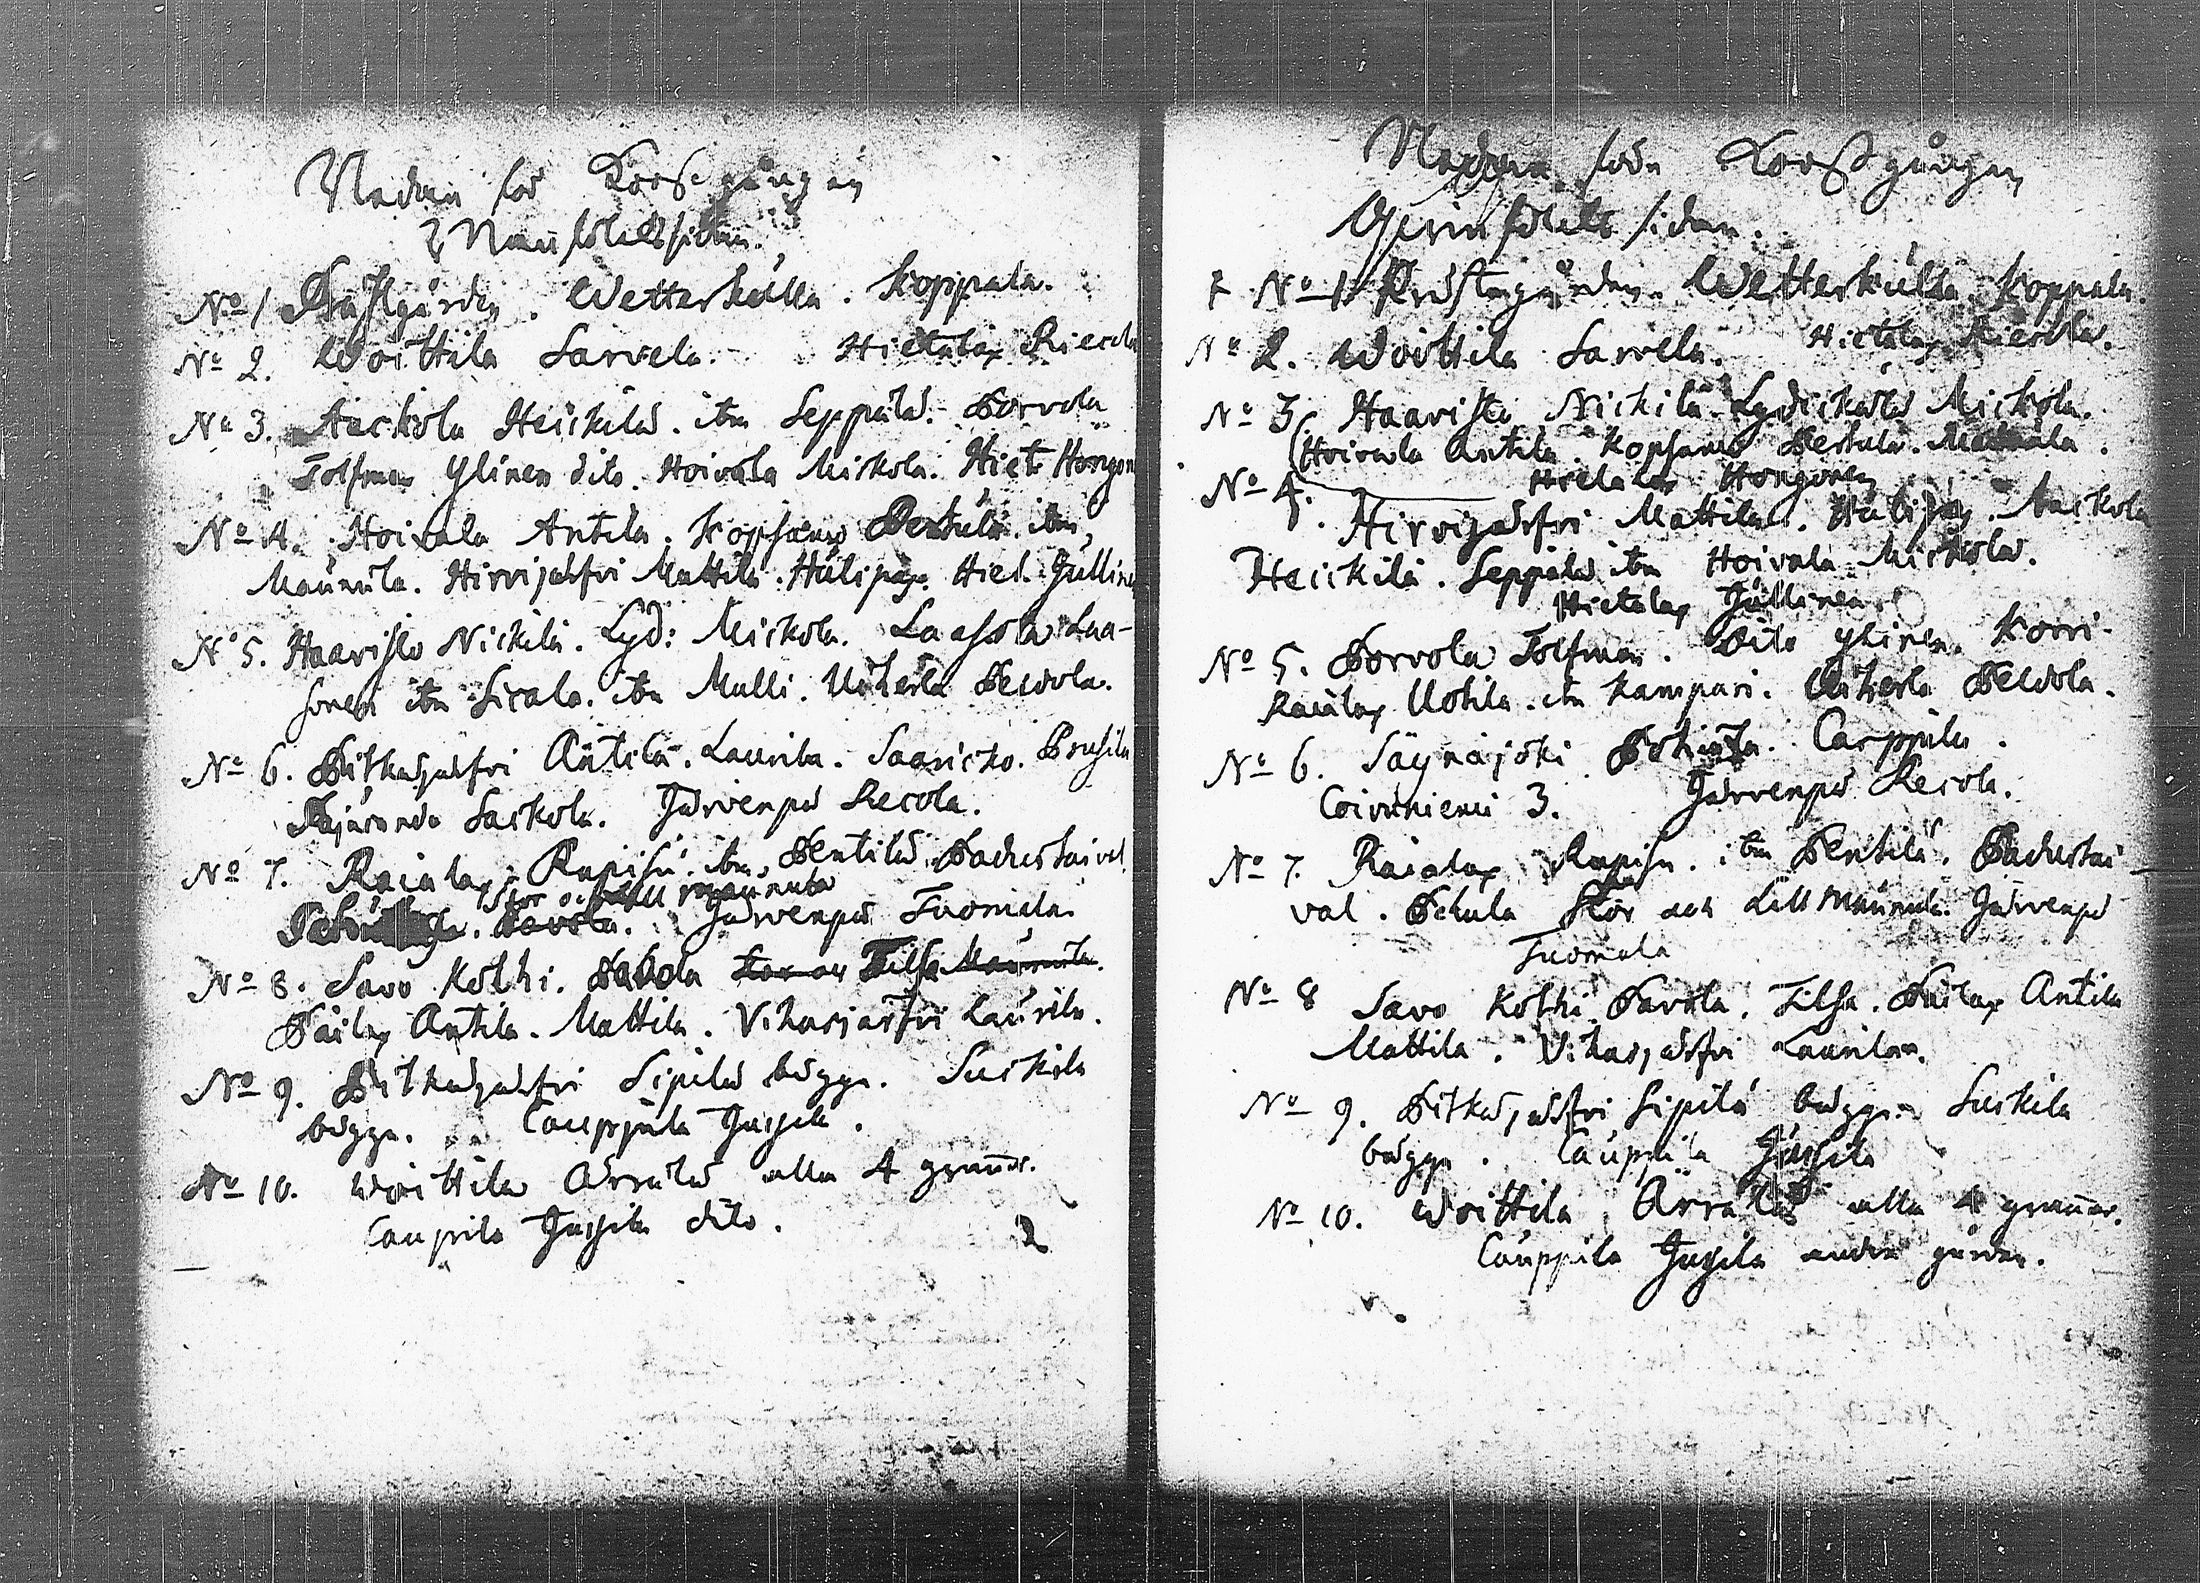 Nedan för Korssgången
Manfolckssidan.
No 1 Prästgården. Wetterkulla. Koppala.
No 2. Woittila Sarvela. Hietalax Riecola
No 3. Aackola Heickilä. itm Seppälä. Porvola
Tolfman Ylinen dito. Hoivala Mickola. Hiet. Hongon
No 4. Hoivala Antila. Kopsamo Pertula itm
Maunula. Hirvijärfvi Mattila. Hälipax. Hiet. Gullinen
No 5. Haaristo Nickilä. Lyd: Mickola. Laasola Laa-
sonen itm Sicala. itm Mulli. Uiherla Pewola.
No 6. Pitkäjärfvi Äntilä. Laurila. Saaricko. Prusila
Pajuranda Sackola. Järvenpä Recola.
No 7. Raialax Rapisu. itm Pentilä. Pachustaival
Stor och lill Maunula
Pavola. Järvenpä Tuomala
No 8. Savo Kolhi. Pavola Tilsa Maunula.
Pailax Antila. Mattila. Vihasjärfvi Laurila.
No 9. Pitkäjärfvi Sipilä bägge. Suckila
bägge. Cauppila Jussila.
No 10. Woittila Ärrälä alla 4 grannar.
Cauppila Jussila dito.
2
Nedan före Korssgången
Qvinfolcks sidan.
No 1 Prästegården. Wetterkulla. Koppala.
No 2. Woittila Sarvela. Hietalax Riecola.
No 3. Haaristo Nickilä Lydickälä Mickola.
Hoivala Antila. Kopsamo Pertula. Maunula.
Hietalax Hongonen
No 4. Hirvijärfvi Mattila. Hälipax. Aackola
Heickilä. Seppälä itm Hoivala Mickola.
Hietalax Gullinen
No 5. Porvola Tolfman. Dito Ylinen. Korri-
Raialax Uotila. itm Kampari. Uiherla Pewola.
No 6. Säynäjoki Pohiala. Cauppila.
Coivuniemi 3. Järvenpä Recola.
No 7. Raialax Rapisu. itm Pentilä. Pachustai-
val. Pehula Stor och Lill Maunula. Järvenpä
Tuomala
No 8 Savo Kolhi Pavola. Tilsa. Pailax Antila
Mattila. Vihasjärfvi Laurila.
No 9. Pitkäjärfvi Sipilä bägge. Suckila
bägge. Cauppila Jussila
No 10. Woittila Ärrälä alla 4 grannar.
Cauppila Jussila andra gården.